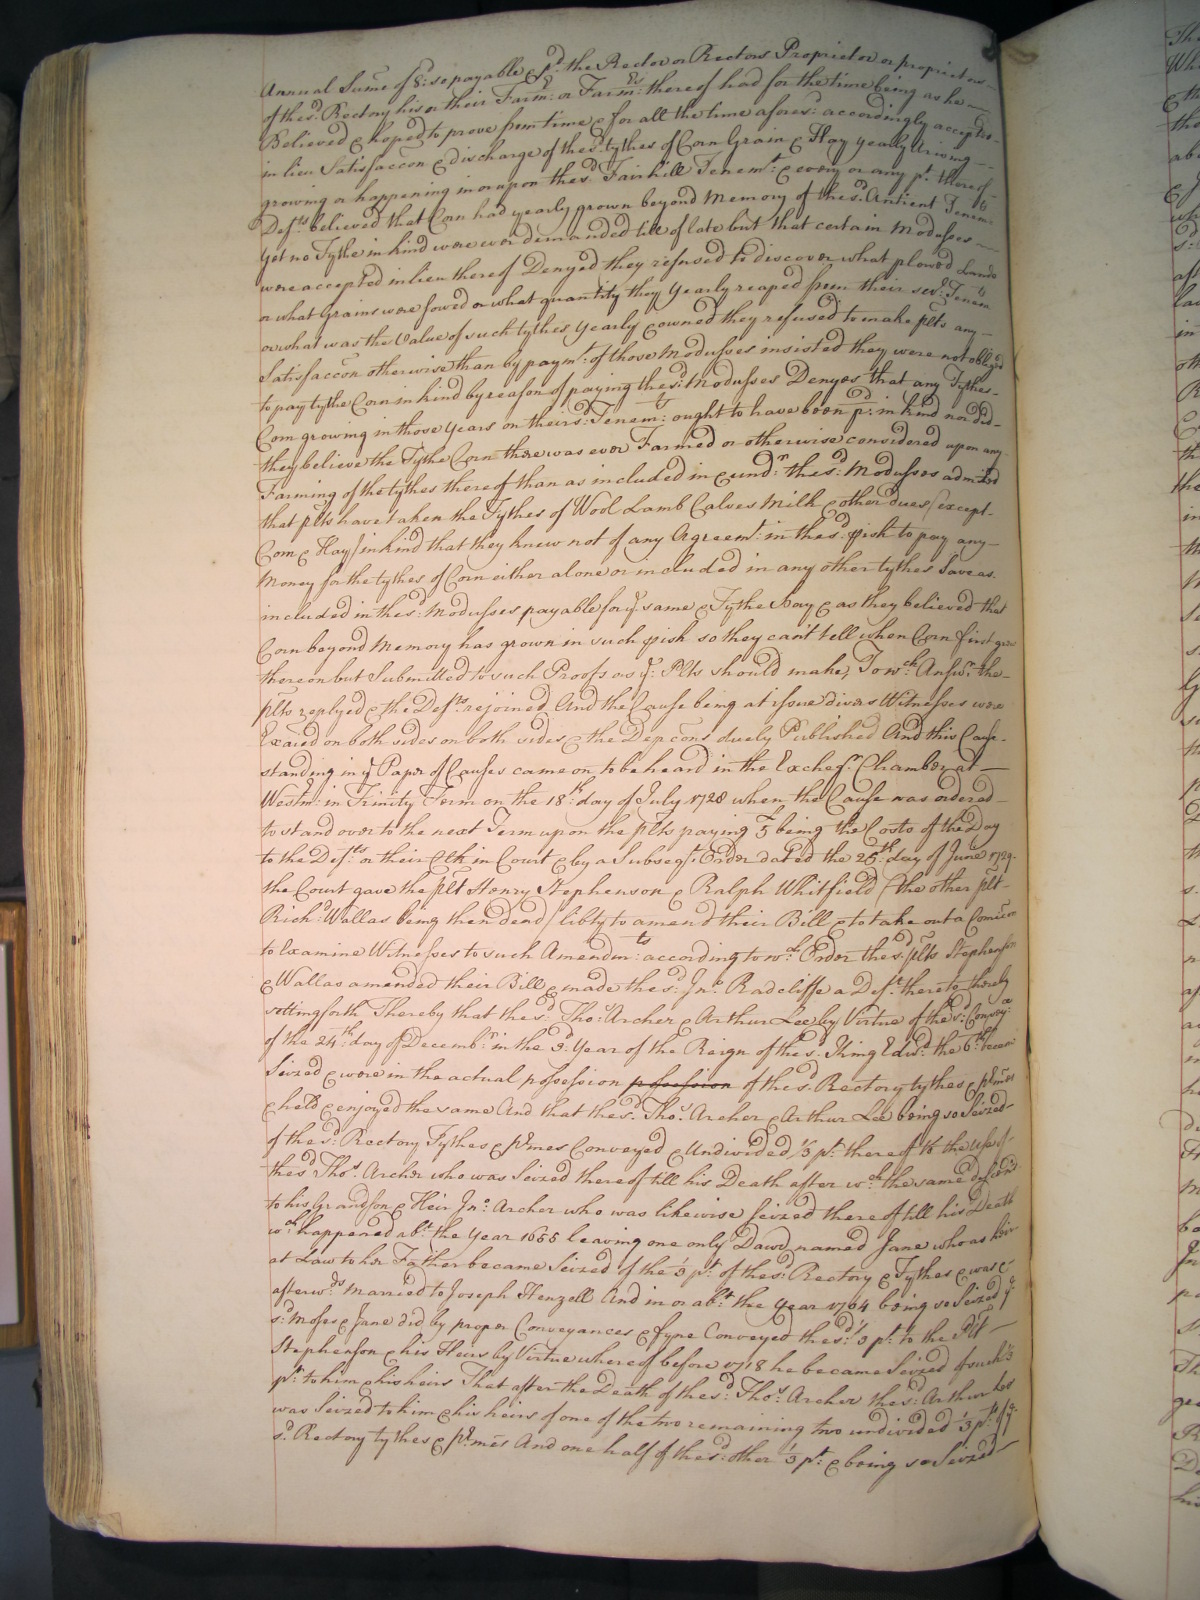 Annual Sume of 8s: so payable & pd: the Rector or Rectors Proprietor or proprietors
of the sd: Rectory his or their Farmr: or Farmrs: thereof had for the time being as he
Believed & hoped to prove from time & for all the time afores: accordingly accepted
in lieu Satisfaccon & discharge of the sd: tythes of Corn Grain & Hay yearly arising
growing or happening in or upon the sd: Fairhill Tenemt: & every or any pt. thereof
Defts: believed that Corn had yearly grown beyond Memory of the sd: Antient Tenemts
yet no Tythe in kind were ever demanded till of late but that certain Modusses
were accepted in lieu thereof Denyed they refused to discover what plowed Lands
or what Grains were sowed or what quantity they yearly reaped from their sevl: Tenemts
or what was the Value of such tythes yearly & owned they refused to make plts any
Satisfaccon otherwise than by paymt: of those Modusses insisted they were not obliged
to pay tythe Corn in kind by reason of paying the sd: Modusses Denyes that any Tythes
Corn growing in those years on theirsd: Tenemts: ought to have been pd: in kind nor did
they believe the Tythe Corn there was ever Farmed or otherwise considered upon any
Farming of the tythes thereof than as included in & undr: the sd: Modusses admitted
that plts have taken the Tythes of Wool Lamb Calves Milk & other dues (except
Corn & Hay) in kind that they knew not of any Agreemt: in the sd: pish to pay any
Money for the tythes of Corn either alone or included in any other tythes Save as
included in the sd: Modusses payable for ye same & Tythe Hay & as they believed that
Corn beyond Memory has grown in such pish so they can't tell when Corn first grew
thereon but Submitted to such Proofs as ye: Plts should make, To wch: Answr: the
plts replyed & the Defts rejoined And the Cause being at issue divers Witnesses were
Exaied on both sides on both sides & the Depcons duely Published And this Cause
standing in ye Paper of Causes came on to be heard in the Excheqr: Chamber at
Westmr: in Trinity Term on the 18th: day of July 1728 when the Cause was ordered
to stand over to the next Term upon the plts paying £5 being the Costs of the Day
to the Defts: or their Clk in Court & by a Subseqt: Order dated the 25th: day of June 1729
the Court gave the plt Henry Stephenson & Ralph Whitfield (the other plt
Richd: Wallas being then dead) libty to amend their Bill & to take out a Comicon
to Examine Witnesses to such Amendmts: according to wch: Order the sd: plts Stephenson
& Wallas amended their Bill & made the sd: Jno: Radcliffe a Deft: thereto thereby
setting forth Thereby that the sd: Thos: Archer & Arthur Lee by Virtue of the sd: Conveya:
of the 24th: day of Decembr: in the 3d: Year of the Reign of the sd: King Edwd: the 6th: became
Seized & were in the actual possession possession of the sd: Rectory tythes & p'mes
& held & enjoyed the same And that the sd: Thos: Archer & Arthur Lee being so Seized
of the sd: Rectory Tythes & p'mes Conveyed & Undivided 1/3 pt: thereof to the use of
the sd Thos: Archer who was Seized thereof till his Death after wch: the same descend
to his Grandson & Heir Jno: Archer who was likewise Seized thereof till his Death
wch: happened abt: the Year 1655 leaving one only Dawr. named Jane who as heir
at Law to her Father became Seized of the 1/3 pt: of the sd: Rectory & Tythes & was
afterwds: Married to Joseph Henzell And in or abt: the Year 1704 being so Seized ye
sd: Moses & Jane did by proper Conveyances & fyne Conveyed the sd: 1/3 pt: to the Plt
Stephenson & his Heirs by Virtue whereof before 1718 he became Seized of such 1/3
pt: to him & his heirs That after the Death of the sd: Thos: Archer the sd: Arthur Lee
was Seized to him & his heirs of one of the two remaining two undivided 1/3 pts: of ye:
sd: Rectory tythes & p'mes And one half of the sd: other 1/3 pt: & being so Seized